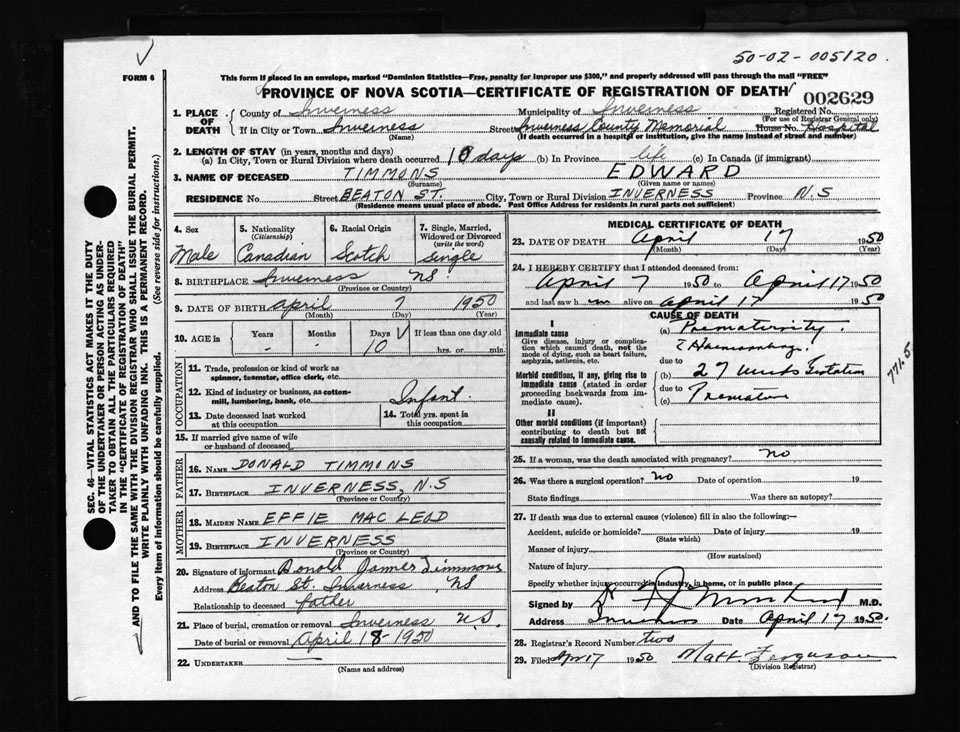 50-02-005120.
FORM 6
This form if placed in an envelope, marked "Dominion Statistics—Free, penalty for improper use $300," and properly addressed will pass through the mail "FREE"
PROVINCE OF NOVA SCOTIA—CERTIFICATE OF REGISTRATION OF DEATH
002629
SEC. 46—VITAL STATISTICS ACT MAKES IT THE DUTY
OF THE UNDERTAKER OR PERSON ACTING AS UNDER-
TAKER TO OBTAIN ALL THE PARTICULARS REQUIRED
IN THE "CERTIFICATE OF REGISTRATION OF DEATH"
AND TO FILE THE SAME WITH THE DIVISION REGISTRAR WHO SHALL ISSUE THE BURIAL PERMIT.
WRITE PLAINLY WITH UNFADING INK. THIS IS A PERMANENT RECORD.
Every item of information should be carefully supplied. (See reverse side for instructions.)
1. PLACE OF DEATH
County of Inverness Municipality of Inverness Registered No.
(For use of Registrar General only)
If in City or Town Inverness Street Inverness County Memorial House No. Hospital
(Name) (If death occurred in a hospital or institution, give the name instead of street and number)
2. LENGTH OF STAY (in years, months and days)
(a) In City, Town or Rural Division where death occurred 10 days (b) In Province life (c) In Canada (if immigrant)
3. NAME OF DECEASED TIMMONS EDWARD
(Surname) (Given name or names)
RESIDENCE No. Street BEATON ST. City, Town or Rural Division INVERNESS Province N.S
(Residence means usual place of abode. Post Office Address for residents in rural parts not sufficient)
4. Sex
Male
5. Nationality
(Citizenship)
Canadian
6. Racial Origin
Scotch
7. Single, Married,
Widowed or Divorced
(write the word)
single
8. BIRTHPLACE Inverness NS
(Province or Country)
9. DATE OF BIRTH april 7 1950
(Month) (Day) (Year)
10. AGE in
Years Months Days If less than one day old
- - 10 hrs. or min.
OCCUPATION
11. Trade, profession or kind of work as
spinner, teamster, office clerk, etc.
12. Kind of industry or business, as cotton-
mill, lumbering, bank, etc. Infant.
13. Date deceased last worked
at this occupation
14. Total yrs. spent in
this occupation
15. If married give name of wife
or husband of deceased
FATHER
16. NAME DONALD TIMMONS
17. BIRTHPLACE INVERNESS, N.S
(Province or Country)
MOTHER
18. MAIDEN NAME EFFIE MAC LEOD
19. BIRTHPLACE INVERNESS
(Province or Country)
20. Signature of informant Donald James Timmons
Address Beaton St. Inverness, NS
Relationship to deceased father
21. Place of burial, cremation or removal Inverness N.S.
Date of burial or removal April 18-1950
22. UNDERTAKER —
(Name and address)
MEDICAL CERTIFICATE OF DEATH
23. DATE OF DEATH April 17 1950
(Month) (Day) (Year)
24. I HEREBY CERTIFY that I attended deceased from:
April 7 1950 to April 17 1950
and last saw h im alive on April 17 1950
CAUSE OF DEATH
I
Immediate cause
Give disease, injury or complica-
tion which caused death, not the
mode of dying, such as heart failure,
asphyxia, asthenia, etc.
(a) Prematurity.
due to
Morbid conditions, if any, giving rise to
immediate cause (stated in order
proceeding backwards from im-
mediate cause).
(b) 27 weeks Gestation
due to
(c) Premature
II
Other morbid conditions (if important)
contributing to death but not
causally related to immediate cause.
77.5
25. If a woman, was the death associated with pregnancy? no
26. Was there a surgical operation? no Date of operation 19
State findings Was there an autopsy?
27. If death was due to external causes (violence) fill in also the following:—
Accident, suicide or homicide? Date of injury 19
(State which)
Manner of injury
(How sustained)
Nature of injury
Specify whether injury occurred in industry, in home, or in public place
Signed by M.D.
Address Inverness Date April 17 1950.
28. Registrar's Record Number two
29. Filed Apr 17 1950 Matt. Ferguson
(Division Registrar)